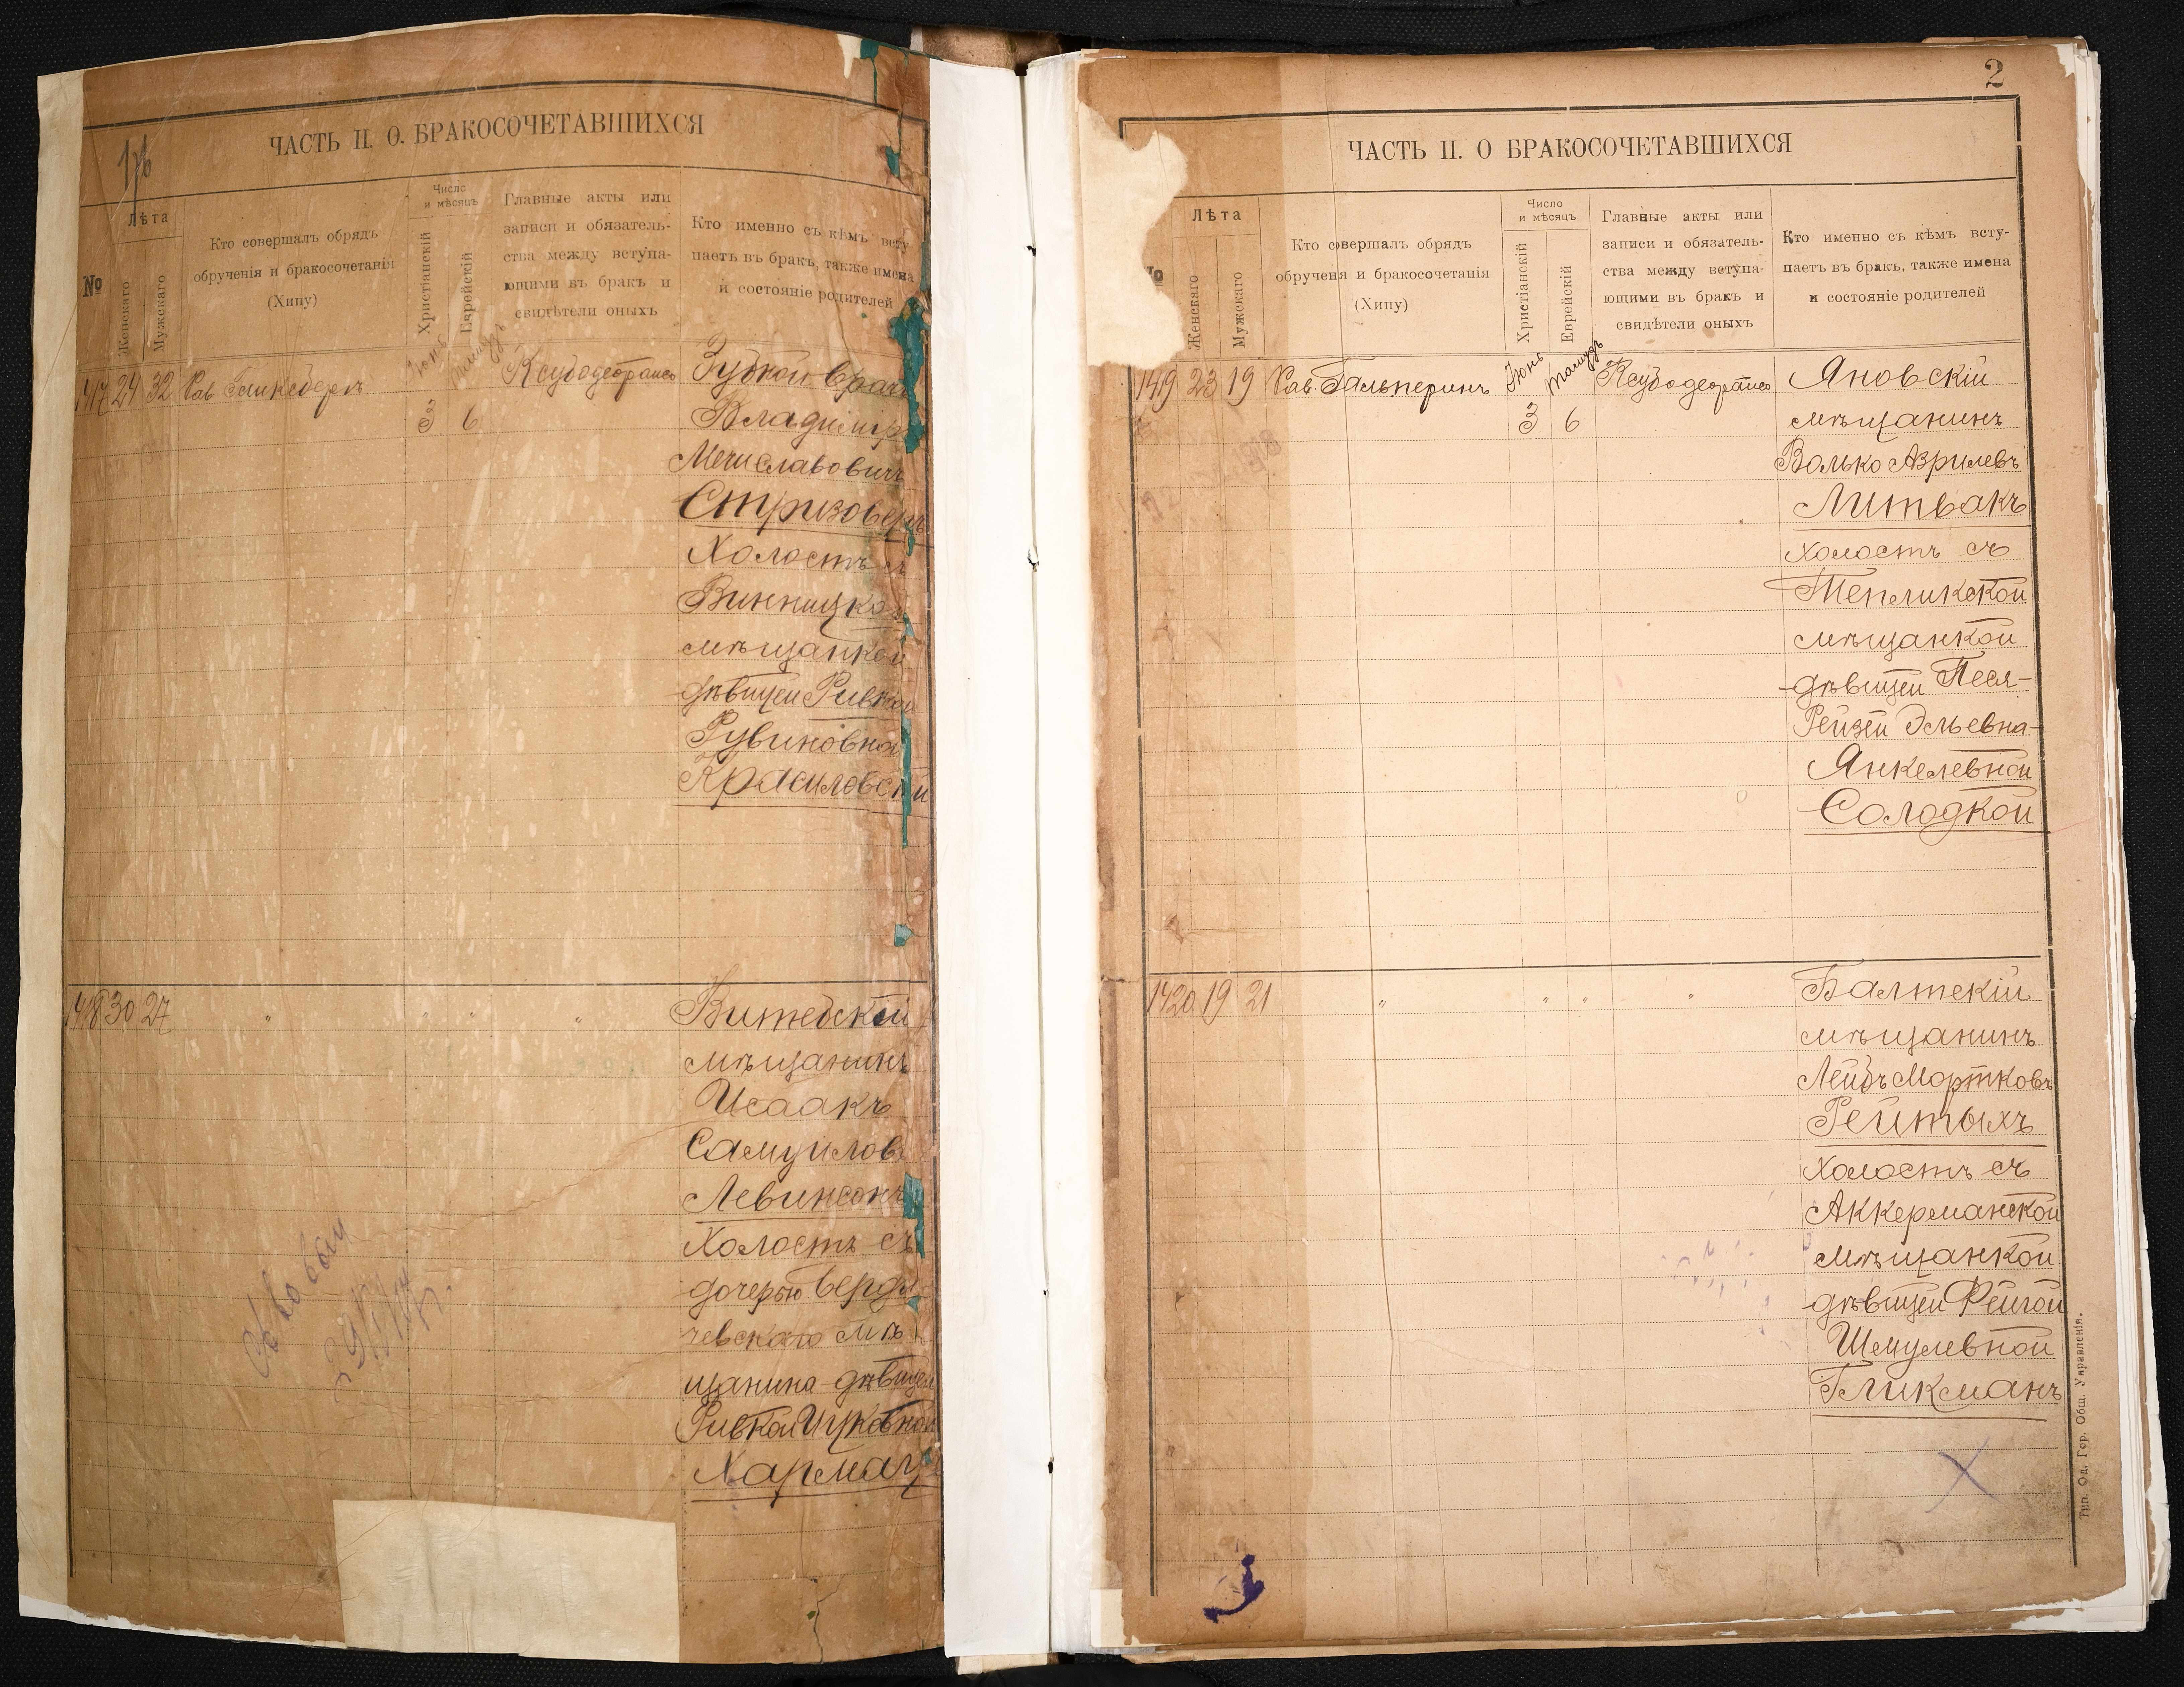 ЧАСТЬ II. О. БРАКОСОЧЕТАВШИХСЯ
№
Лѣта
Женскаго
Мужскаго
Кто совершалъ обрядъ
обрученія и бракосочетанія
(Хипу)
Число
и мѣсяцъ
Христіанскій
Еврейскій
Главные акты или
записи и обязатель-
ства между вступа-
ющими въ бракъ и
свидѣтели оныхъ
Кто именно съ кѣмъ всту
паетъ въ бракъ, также имена
и состояніе родителей
1417 24 32 Рав
Июнь
3 6
Зубной врачъ
Владимір
Мечиславовичъ
Стризоверъ
Холостъ съ
Винницкой
мѣщанкой
дѣвицей Ривкой
Рувиновна
Красиловской
1418 30 27 " " " "
Витебскій
мѣщанинъ
Исаакъ
Самуилов
Левинсонъ
Холостъ съ
дочерью Берди
чевскаго мѣ
щанина дѣвицей
Ривкой Ицковной
Хармац
2
ЧАСТЬ II. О БРАКОСОЧЕТАВШИХСЯ
Лѣта
Женскаго
Мужскаго
Кто совершалъ обрядъ
обрученя и бракосочетанія
(Хипу)
Число
и мѣсяцъ
Христіанскій
Еврейскій
Главные акты или
записи и обязатель-
ства между вступа-
ющими въ бракъ и
свидѣтели оныхъ
Кто именно съ кѣмъ всту-
паетъ въ бракъ, также имена
и состояніе родителей
1419 23 19 Рав Гальперинъ
Июнь Тамузъ
3 6
Яновскій
мѣщанинъ
Волько Азрилевъ
Литвакъ
холостъ съ
Тепликской
мѣщанкой
дѣвицей Песя-
Рейзей Эльевна-
Янкелевной
Солодкой
1420 19 21 " " " "
Балтскій
мѣщанинъ
Лейбъ Мортковъ
Рейтыхъ
холостъ съ
Аккерманской
мѣщанкой
дѣвицей Фейгой
Шмулевной
Гликманъ
Тип. Од. Гор. Общ. Управленія.